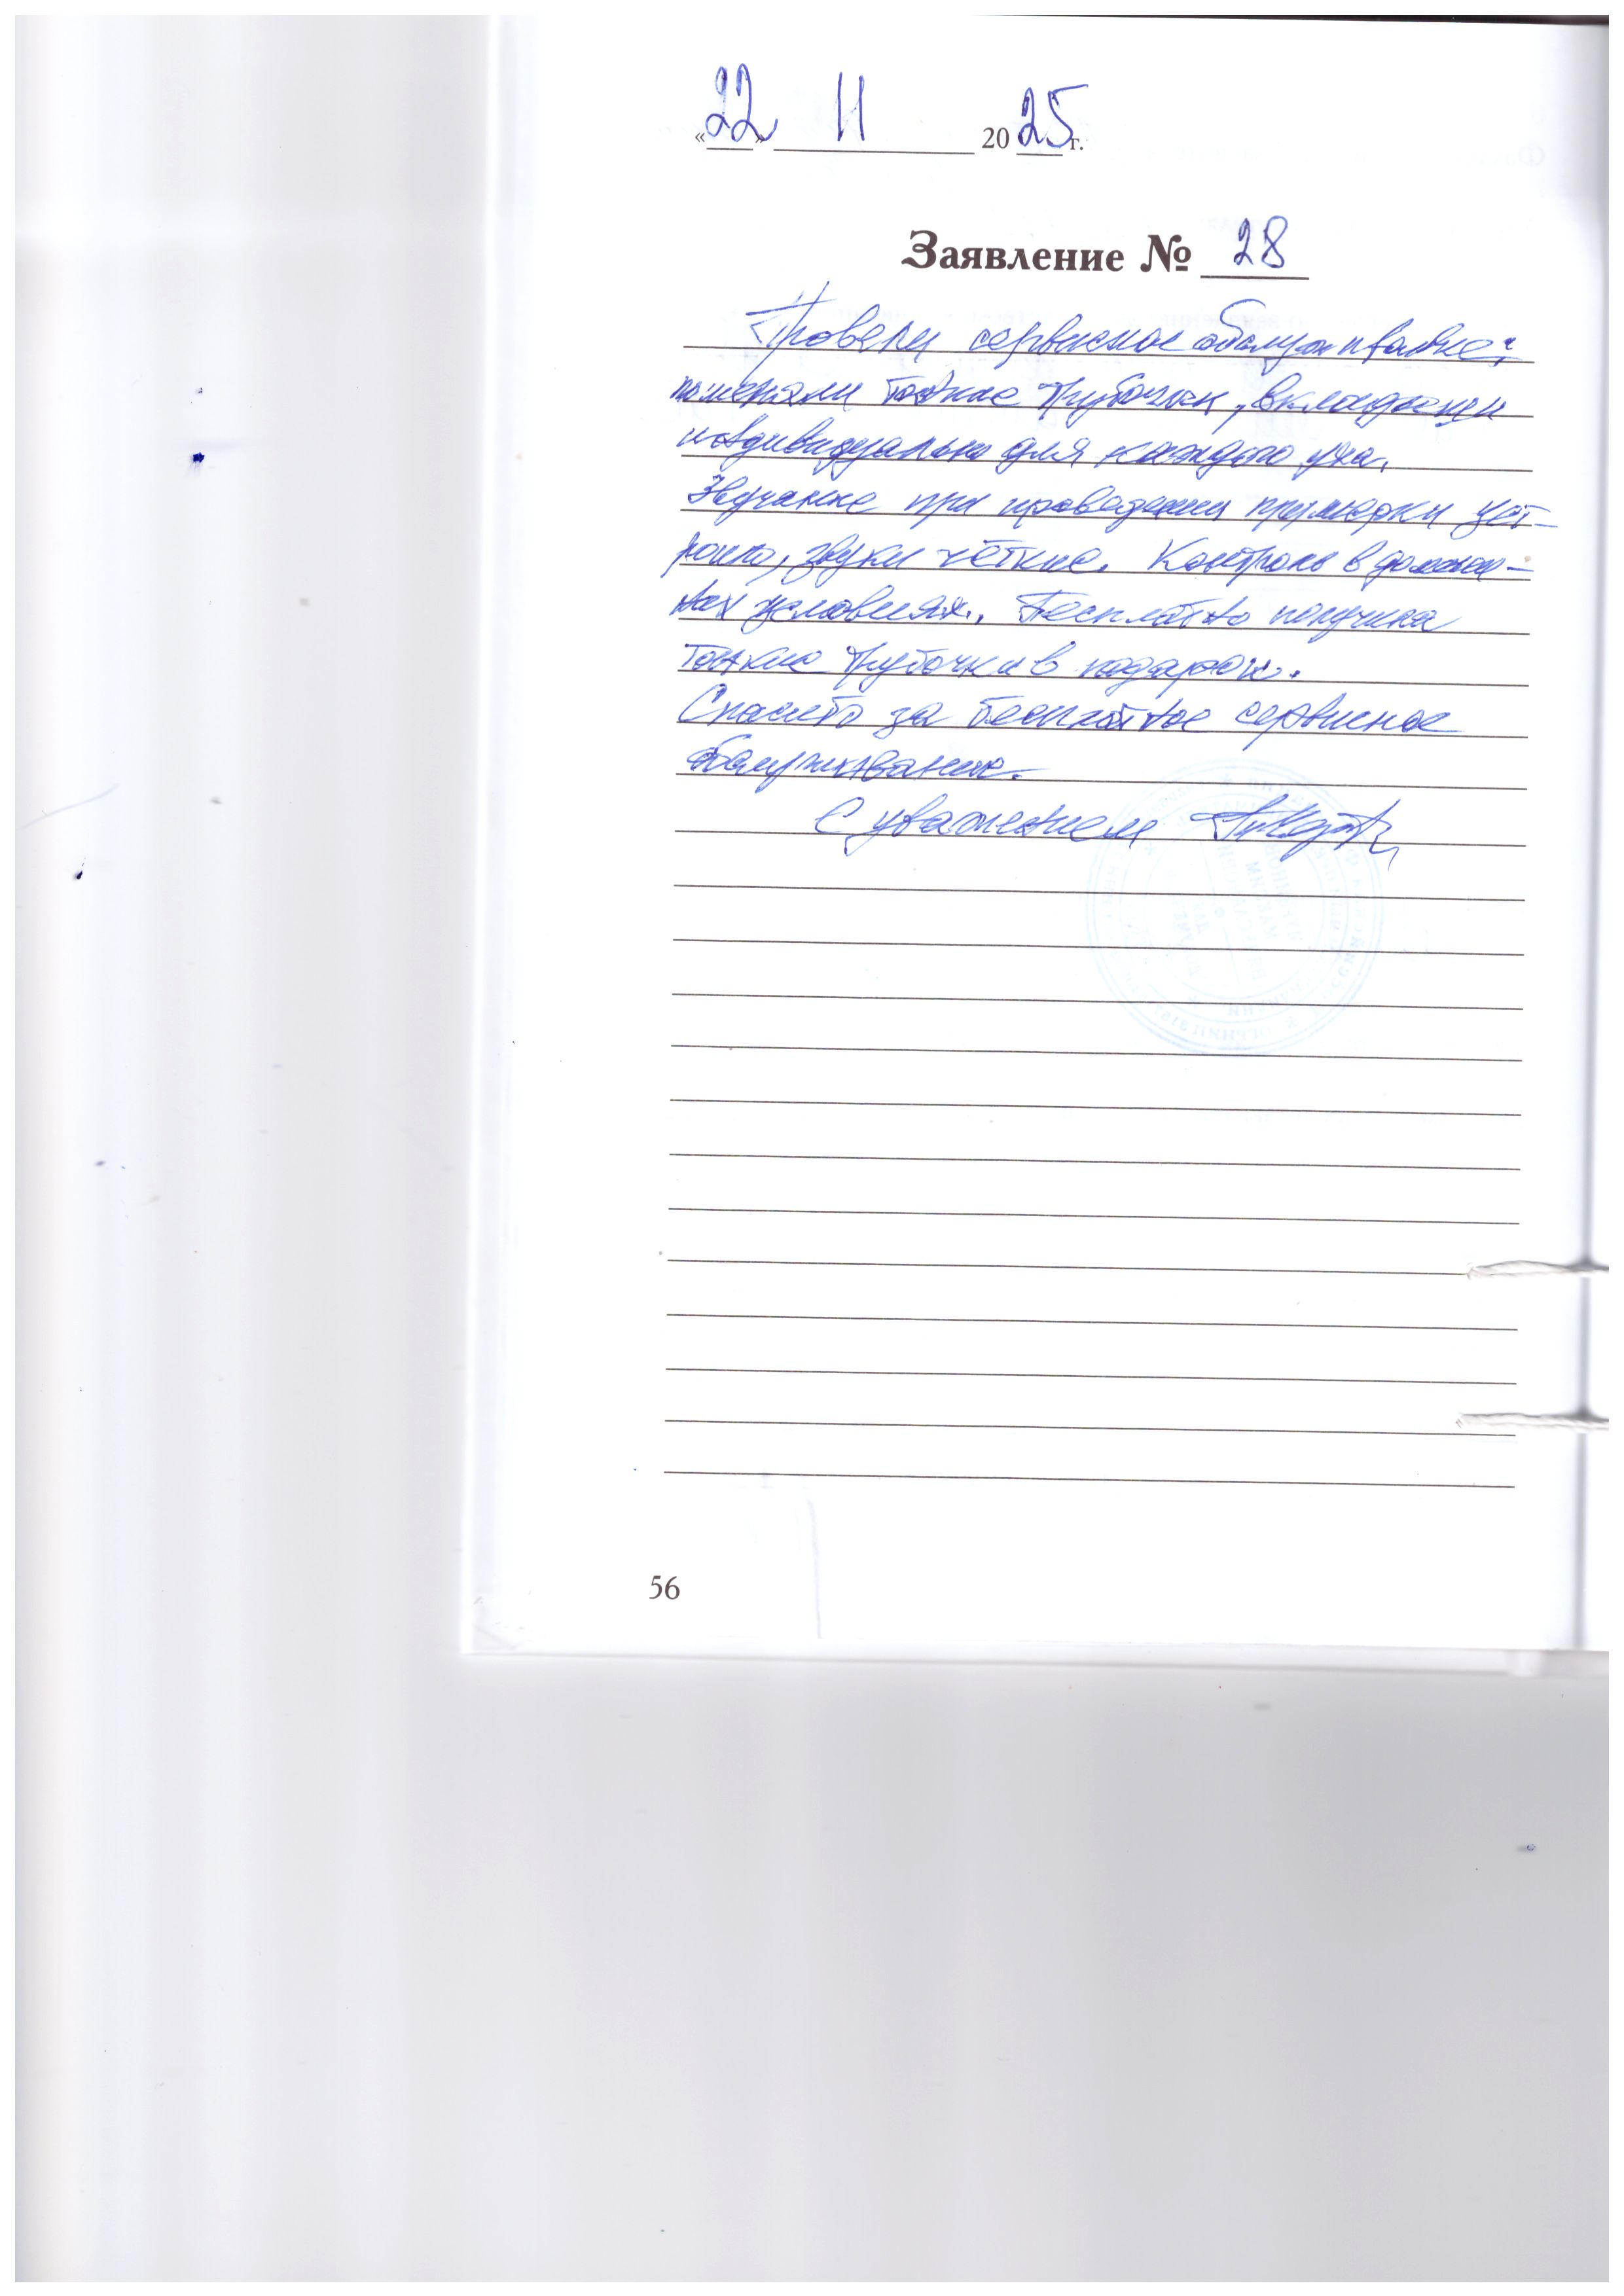 «22» 11 2025 г.
Заявление № 28
Провели сервисное обслуживание:
поменяли тонкие трубочки, вкладыши
индивидуально для каждого уха.
Звучание при проведении примерки уст-
роило, звуки чёткие. Контроль в домаш-
них условиях. Бесплатно получила
тонкие трубочки в подарок.
Спасибо за бесплатное сервисное
обслуживание.
С уважением
56